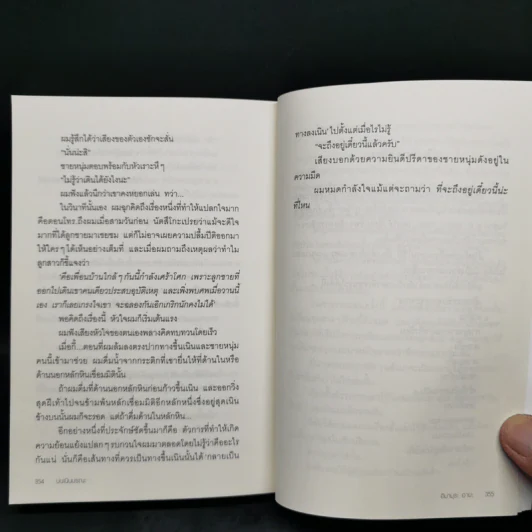 ผมรู้สึกได้ว่าเสียงของตัวเองชักจะสั่น
"นั่นน่ะสิ"
ชายหนุ่มตอบพร้อมกับหัวเราะหึๆ
"ไม่รู้ว่าเดินได้ยังไงนะ"
ผมฟังแล้วนึกว่าเขาคงหยอกเล่น ทว่า...
ในวินาทีนั้นเอง ผมฉุกคิดถึงเรื่องหนึ่งที่ทำให้แปลกใจมาก
คือตอนโทร.ถึงผมเมื่อสามวันก่อน นัตสึโกะเปรยว่าแม้จะดีใจ
มากที่ได้ลูกชายมาเชยชม แต่ก็ไม่อาจเผยความปลื้มปีติออกมา
ให้ใครๆ ได้เห็นอย่างเต็มที่ และเมื่อผมถามถึงเหตุผลว่าทำไม
ลูกสาวก็ชี้แจงว่า
'คือเพื่อนบ้านใกล้ๆ กันนี้กำลังเศร้าโศก เพราะลูกชายที่
ออกไปเดินเขาคนเดียวประสบอุบัติเหตุ และเพิ่งพบศพเมื่อวานนี้
เอง เราก็เลยเกรงใจเขา จะฉลองกันเอิกเกริกนักคงไม่ได้'
พอคิดถึงเรื่องนี้ หัวใจผมก็เริ่มเต้นแรง
ผมฟังเสียงหัวใจของตนเองพลางคิดทบทวนโดยเร็ว
เมื่อกี้...ตอนที่ผมล้มลงตรงปากทางขึ้นเนินและชายหนุ่ม
คนนี้เข้ามาช่วย ผมดื่มน้ำจากกระติกที่เขายื่นให้ที่ด้านในหรือ
ด้านนอกหลักหินเชื่อมมิตินั้น
ถ้าผมดื่มที่ด้านนอกหลักหินก่อนก้าวขึ้นเนิน และออกวิ่ง
สุดฝีเท้าไปจนข้ามพ้นหลักเชื่อมมิติอีกหลักหนึ่งซึ่งอยู่สุดเนิน
ข้างบนนั้นผมก็จะรอด แต่ถ้าดื่มด้านในหลักหิน...
อีกอย่างหนึ่งที่ประจักษ์ชัดขึ้นมาก็คือ ตัวการที่ทำให้เกิด
ความย้อนแย้งแปลกๆ รบกวนใจผมมาตลอดโดยไม่รู้ว่าคืออะไร
กันแน่ นั่นก็คือเส้นทางที่ควรเป็นทางขึ้นเนินนั้นได้ 'กลายเป็น
354
ทางลงเนิน' ไปตั้งแต่เมื่อไรไม่รู้
"จะถึงอยู่เดี๋ยวนี้แล้วครับ"
เสียงบอกด้วยความยินดีปรีดาของชายหนุ่มดังอยู่ใน
ความมืด
ผมหมดกำลังใจแม้แต่จะถามว่า ที่จะถึงอยู่เดี๋ยวนี้น่ะ
ที่ไหน
355